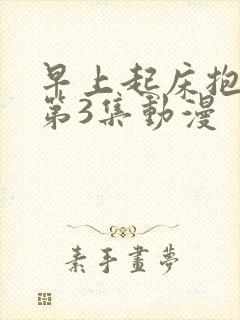 早上起床抱
第3集動漫
素手畫夢